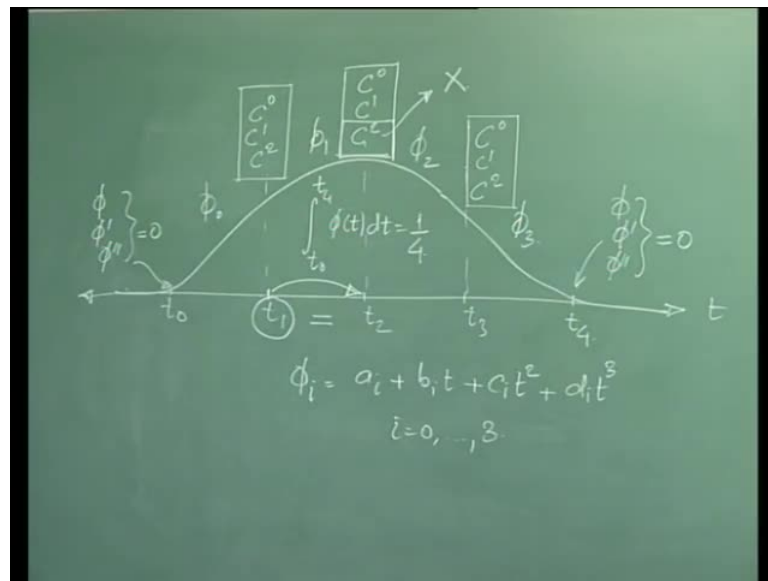 C⁰
C¹
C²
C⁰
C¹
C²
X
C⁰
C¹
C²
ϕ₀
ϕ₁
ϕ₂
ϕ₃
ϕ
ϕ'
ϕ''
} = 0
∫ₜ₀^t₄ ϕ(t)dt = 1/4
ϕ
ϕ'
ϕ''
} = 0
t₀ t₁ = t₂ t₃ t₄ t
ϕᵢ = aᵢ + bᵢt + cᵢt² + dᵢt³
i=0, ..., 3.